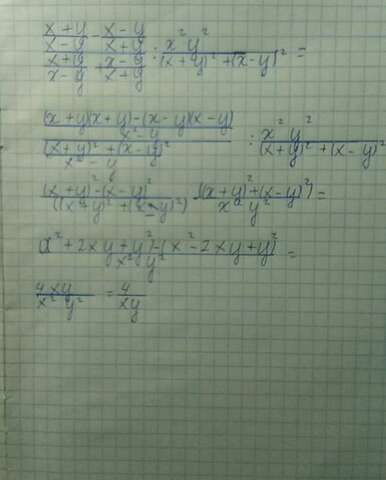 x + y / x - y - x - y / x + y
x + y / x - y + x - y / x + y : x² y² / (x + y)² + (x - y)² =
(x + y)(x + y) - (x - y)(x - y) / x² - y²
(x + y)² + (x - y)² / x² - y² : x² y² / (x + y)² + (x - y)²
(x + y)² - (x - y)² / ((x + y)² + (x - y)²) · ((x + y)² + (x - y)²) / x² y² =
a² + 2xy + y² - (x² - 2xy + y)² / x² y² =
4xy / x² y² = 4 / xy